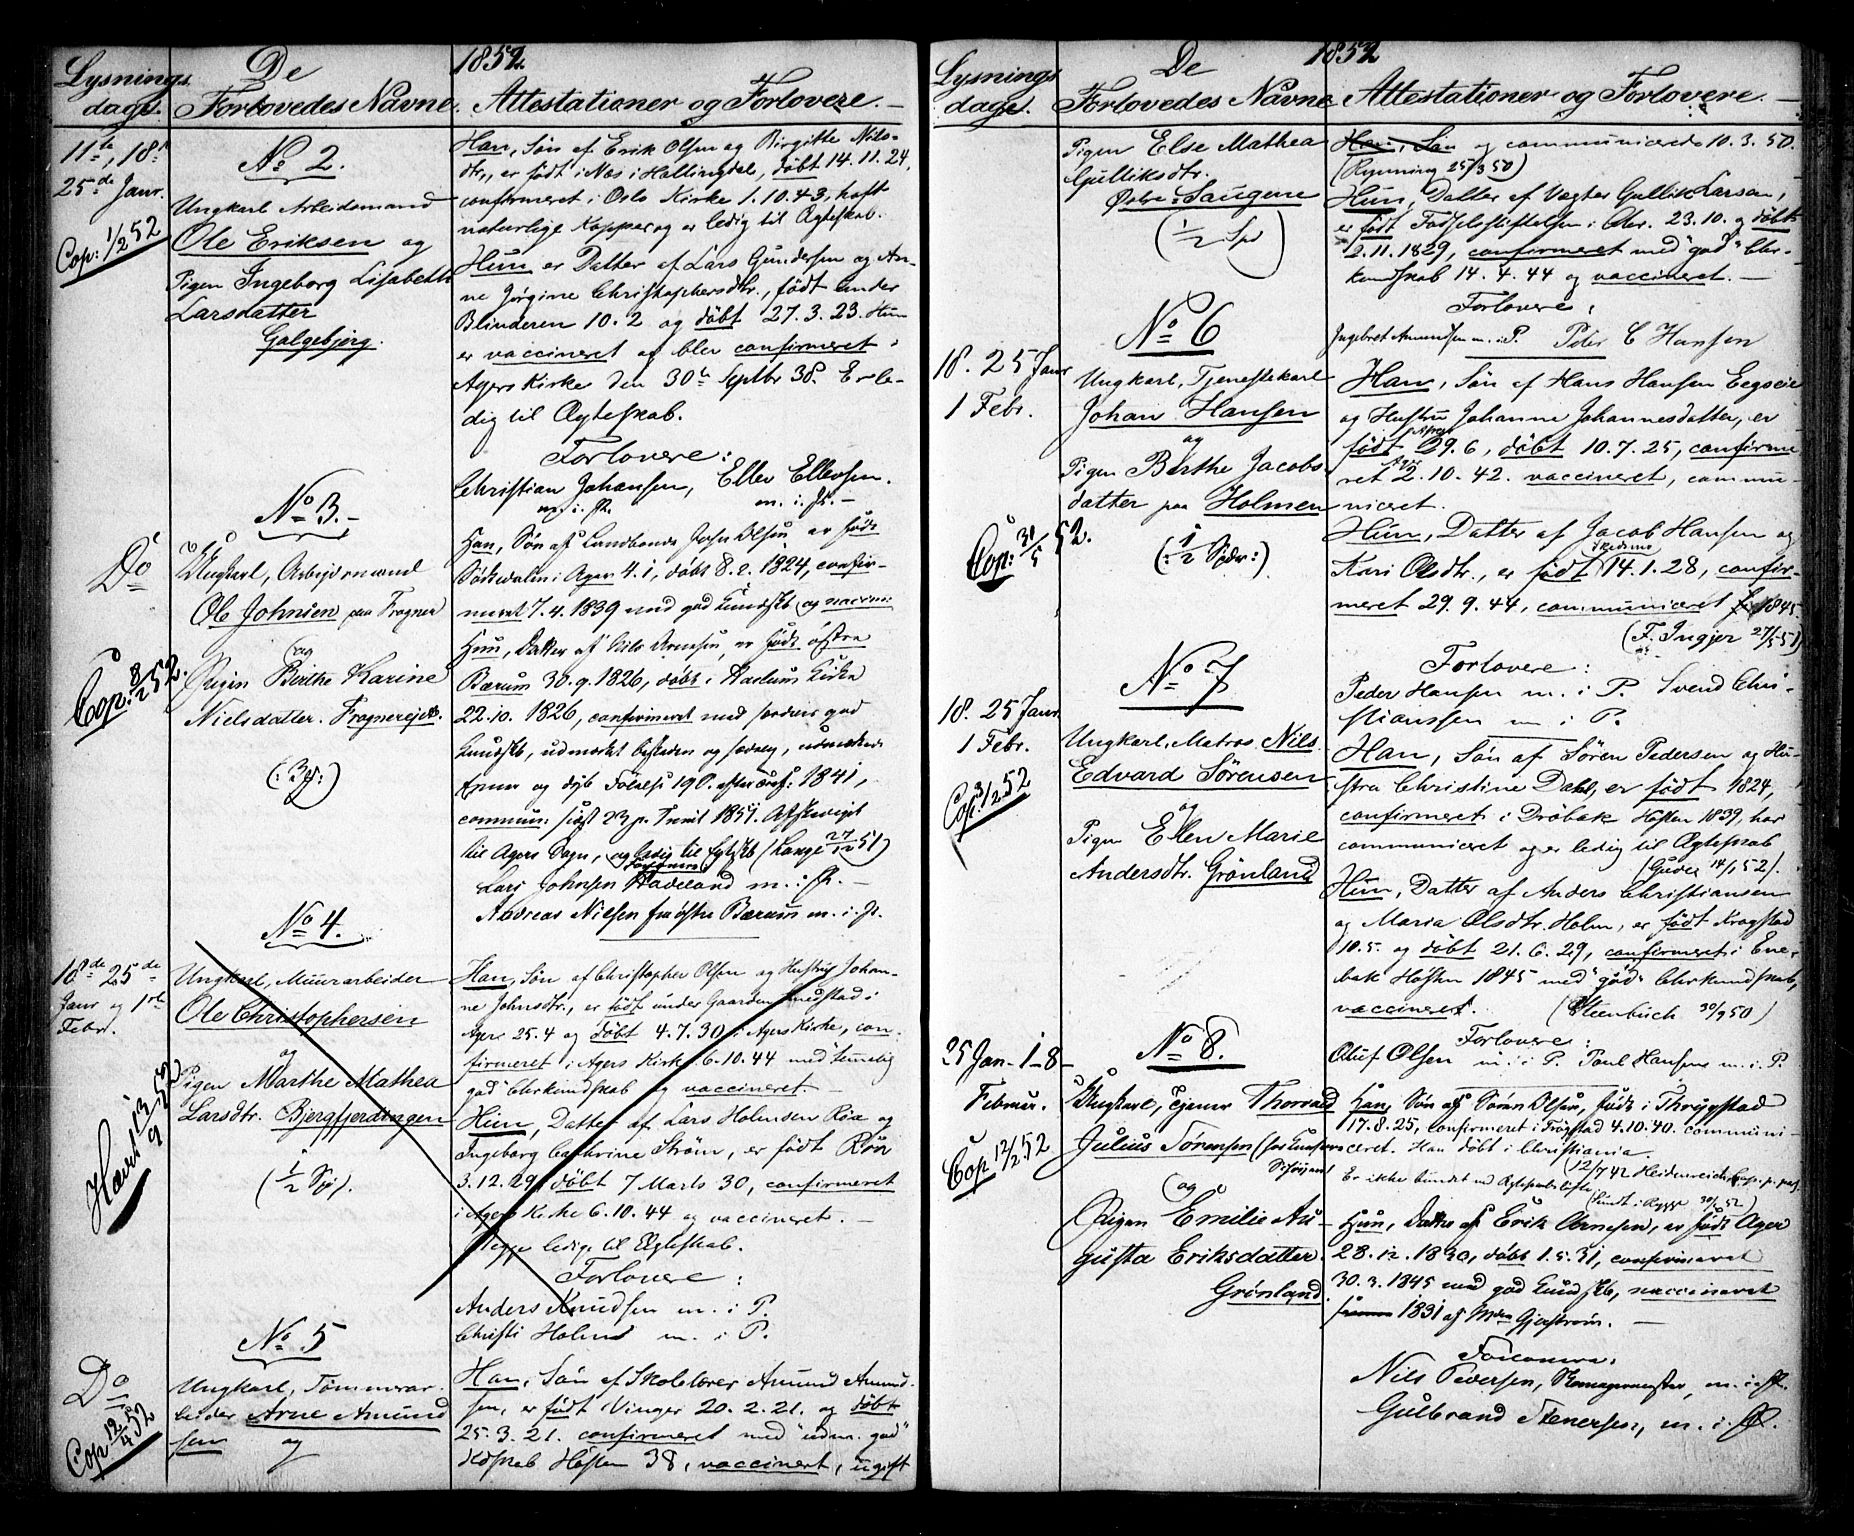 1852
Lysnings
dage.
De
Forlovedes Navne.
Attestationer og Forlovere.
11te, 18de
25de Janr.
Cop: 1/2 52
No 2.
Ungkarl Arbeidsmand
Ole Eriksen og
Pigen Ingeborg Lisabeth
Larsdatter
Galgebjerg.
Han, Søn af Erik Olsen og Birgitte Nils-
dtr., er født i Næs i Hallingdal, døbt 14.11.24,
confirmeret i Oslo Kirke 1.10.43, haft
naturlige Kopper og er ledig til Ægteskab.
Hun er Datter af Lars Gundersen og An-
ne Jørgine Christophersdtr., født under
Blinderen 10.2 og døbt 27.3.23. Hun
er vaccineret og blev confirmeret i
Agers Kirke den 30te Septbr 38. Er le-
dig til Ægteskab.
Forlovere:
Christian Johansen, Ellev Ellevsen.
m. i. P. m. i. P. —
Do
Cop: 8/2 52.
No 3. —
Ungkarl, Arbeidsmand
Ole Johnsen paa Frogner
og
Pigen Birthe Karine
Nielsdatter. Frognereje.
Han, Søn af Landbonde John Olsen er født
i Ager 4.1, døbt 8.2.1824, confir-
meret 7.4.1839 med god Kundskb og vaccin:
Hun, Datter af Nils Arnesen, er født østre
Bærum 30.9.1826, døbt i Haslum Kirke
22.10.1826, confirmeret med særdeles god
Kundskb, udmærket og
Evner og 1841,
commun: sidst 23 p. Trinit 1851.
til Agers Sogn, og ledig til Egtskb (Lange 27/12 51)
Lars Johnsen Hadeland m. i. P. —
Andreas Nielsen fra østre Bærum m. i. P.
18de 25de
Janr og 1ste
Febr.
Hævet 13/9 52
No 4.
Ungkarl, Muurarbeider
Ole Christophersen
og
Pigen Marthe Mathea
Larsdtr. Bjergfjerdingen
(1/2 Spd).
Han, Søn af Christopher Olsen og Hustru Johan-
ne Johnsdtr., er født under Gaarden
Ager 25.4 og døbt 4.7.30 i Agers Kirke, con-
firmeret i Agers Kirke 6.10.44 med "temmelig
god" Chrkundskab og vaccineret. —
Hun, Datter af Lars Holmsen Roa og
Ingeborg Cathrine Strøm, er født Röa
3.12.29, døbt 7 Marts 30, confirmeret
i Agers Kirke 6.10.44 og vaccineret. —
Begge ledige til Ægteskab.
Forlovere:
Anders Knudsen m. i P.
Christi Holmd m. i P.
Do
Cop 12/4 52
No 5
Ungkarl, Tømmerar-
beider Arne Amund
sen og
Han, Søn af Skolelærer Amund Amund-
sen, er født Vinger 20.2.21. og døbt
25.3.21. confirmeret med "udm. god"
Kdskab Høsten 38, vaccineret, ugift
1852
Lysnings
dage.
De
Forlovedes Navne
Attestationer og Forlovere.
Pigen Else Mathea
Gulliksdtr.
Øvre Saugene
(1/2 Spd)
Han, Søn og communicerede 10.3.50.
(Rynning 25/3 50)
Hun, Datter af Vægter Gullik Larsen,
er født Fødselsstiftelsen i Chr. 23.10. og døbt
2.11.1829, confirmeret med "god" Chr-
kundskab 14.4.44 og vaccineret. —
Forlovere:
Ingebret Amundsen m. i. P. Peder C Hansen
18. 25 Janr
1 Febr.
Cop: 31/5 52.
No 6
Ungkarl, Tjenestekarl
Johan Hansen
og
Pigen Birthe Jacobs-
datter paa Holmen
(: 1/2 Spdr :)
Han, Søn af Hans Hansen Eegseie
og Hustru Johanne Johannesdatter, er
født 29.6, døbt 10.7.25, confirme
ret 2.10.42. vaccineret, commu-
niceret.
Hun, Datter af Jacob Hansen og
Kari Olsdtr., er født Skedsmo 14.1.28, confir-
meret 29.9.44, communiceret 1845
(F. Ingjer 27/5 51)
Forlovere:
Peder Hansen m. i P. Svend Chri-
stianssen m i P.
18. 25 Janr
1 Febr.
Cop: 3/2 52
No 7
Ungkarl, Matros Nils
Edvard Sørensen
og
Pigen Ellen Marie
Andersdtr. Grønland
Han, Søn af Søren Pedersen og Hu-
stru Christine Dahl, er født 1824,
confirmeret i Drøbak Høsten 1839, har
communiceret og er ledig til Ægteskab
14/1 52).
Hun, Datter af Anders Christiansen
og Maria Olsdtr. Holm, er født Kragstad
10.5. og døbt 21.6.29, confirmeret i Ene-
bak Høsten 1845 med "god" Chrkundskab,
vaccineret. (Steenbuch 30/9 50)
Forlovere:
Oluf Olsen m. i P. Poul Hansen m. i P.
25 Jan - 1 - 8 -
Februar.
Cop 12/2 52
No 8.
Ungkarl, Tjener Thorvald
Julius Sørensen
og
Pigen Emilie Au-
gusta Eriksdatter.
Grønland.
Han, Søn af Søren Olsen, født i Thrygstad
17.8.25, confirmeret i Trøgstad 4.10.40. communi-
ceret. Han døbt i Christiania.
Er ikke bundet ved Ægteskabsløfte (12/7 42 Heidenreich
30/1 52)
Hun, Datter af Erik Arnesen, er født Ager
28.12.1830, døbt 1.5.31, confirmeret
30.3.1845 med god Kundskb, vaccineret
1831 af
Forlovere:
Nils Pedersen, m. i P.
Gulbrand Stenersen, m. i P.